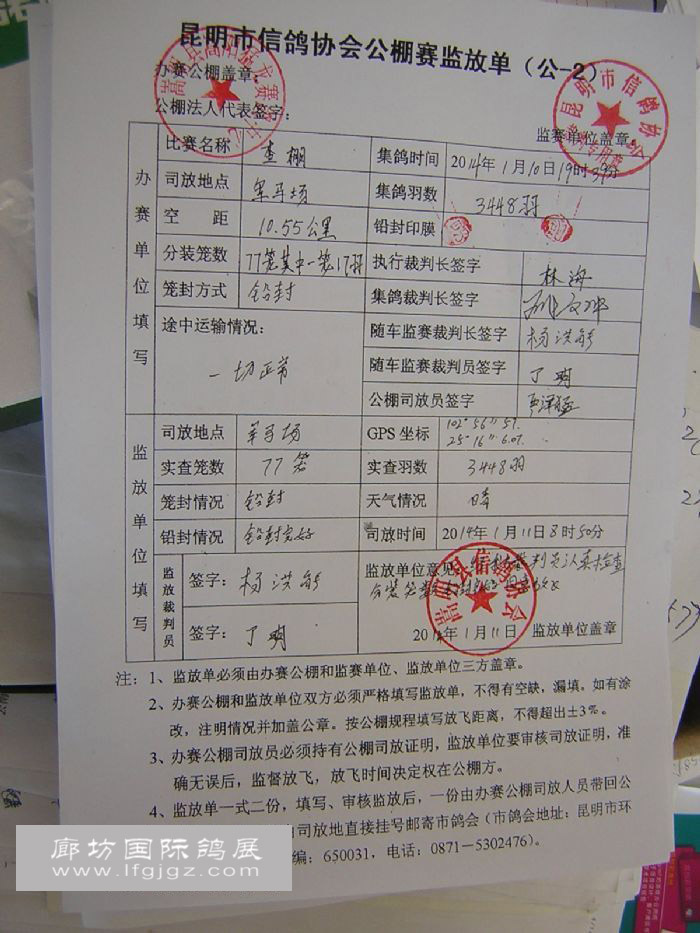 昆明市信鸽协会公棚赛监放单（公-2）
办赛公棚盖章：
公棚法人代表签字：
监赛单位盖章
昆明市信鸽协会
办赛单位填写
比赛名称 查棚 集鸽时间 2014年1月10日19时39分
司放地点 单马场 集鸽羽数 3448羽
空 距 10.55公里 铅封印膜
分装笼数 77笼其中一笼17羽 执行裁判长签字 林海
笼封方式 铅封 集鸽裁判长签字
途中运输情况： 随车监赛裁判长签字 杨洪能
一切正常 随车监赛裁判员签字 丁明
公棚司放员签字
监放单位填写
司放地点 单马场 GPS 坐标 102°56"57. 25°16"6.07.
实查笼数 77笼 实查羽数 3448羽
笼封情况 铅封 天气情况 晴
铅封情况 铅封完好 司放时间 2014年1月11日8时50分
监放裁判员
签字：杨洪能
签字：丁明
监放单位意见：
2014年1月11日 监放单位盖章
注：1、监放单必须由办赛公棚和监赛单位、监放单位三方盖章。
2、办赛公棚和监放单位双方必须严格填写监放单，不得有空缺，漏填。如有涂
改，注明情况并加盖公章。按公棚规程填写放飞距离，不得超出±3%。
3、办赛公棚司放员必须持有公棚司放证明，监放单位要审核司放证明，准
确无误后，监督放飞，放飞时间决定权在公棚方。
4、监放单一式二份，填写、审核监放后，一份由办赛公棚司放人员带回公
由司放地直接挂号邮寄市鸽会（市鸽会地址：昆明市环
编：650031，电话：0871-5302476）。
廊坊国际鸽展
www.lfgjgz.com